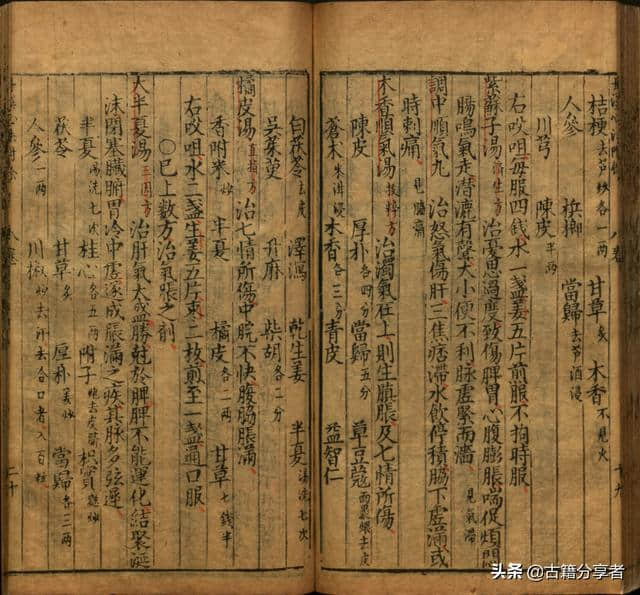 桔梗去芦炒各一两 甘草炙 木香不見火
人參 梹榔 當歸去芦酒浸
川芎 陳皮半两
右㕮咀每服四錢水一盞姜五片煎服不拘時服
紫蘇子湯濟生方 治憂思過度致傷脾胃心腹膨脹喘促煩悶
腸鳴氣走漉漉有聲大小便不利脉虚緊而濇 見氣滯
調中順氣丸 治怒氣傷肝三焦痞滯水飲停積脇下虚滿或
時刺痛 見脇痛
木香順氣湯 治濁氣在上則生䐜脹及七情所傷
陳皮 厚朴各四分 當歸五分 草豆蔻面裹煨去皮
蒼术 木香各三分 青皮 益智仁
白茯苓去皮 澤瀉 乾生姜 半夏湯洗七次
吳茱萸 升麻 柴胡各二分
橘皮湯直指方 治七情所傷中脘不快腹脇脹滿
香附米炒 半夏 橘皮各二两 甘草七錢半
右㕮咀水二盞生姜五片棗二枚煎至一盞通口服
○巳上数方治氣脹之剤
大半夏湯三因方 治肝氣大盛勝尅於脾脾不能運化結聚涎
沫閉塞臟腑胃冷中虚遂成脹滿之疾其脉多弦遲
半夏湯洗七次 桂心各五两 附子炮去皮臍 枳實麸炒
茯苓 甘草炙 厚朴姜炒 當歸各三两
人參一两 川椒炒去汗去合口者八百粒
十九
二十
头条 @古籍分享者